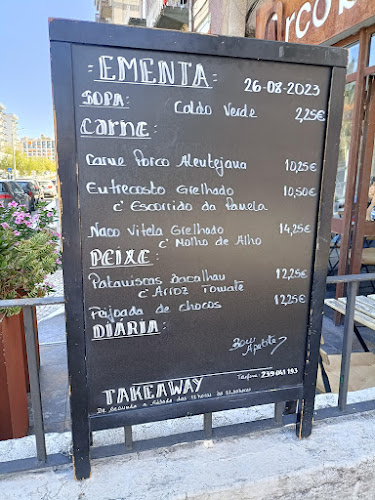 Arco b
EMENTA
26-08-2023
SOPA:
Caldo Verde 2,25€
Carne:
Carne Porco Alentejana 10,25€
Entrecosto Grelhado 10,50€
c/ Escorrido da Panela
Naco Vitela Grelhado 14,25€
c/ Molho de Alho
PEIXE:
Pataniscas Bacalhau 12,25€
c/ Arroz Tomate
Feijoada de chocos 12,25€
DIÁRIA:
Bom
Apetite
Telefone: 239 041 193
TAKEAWAY
De Segunda a Sábado das